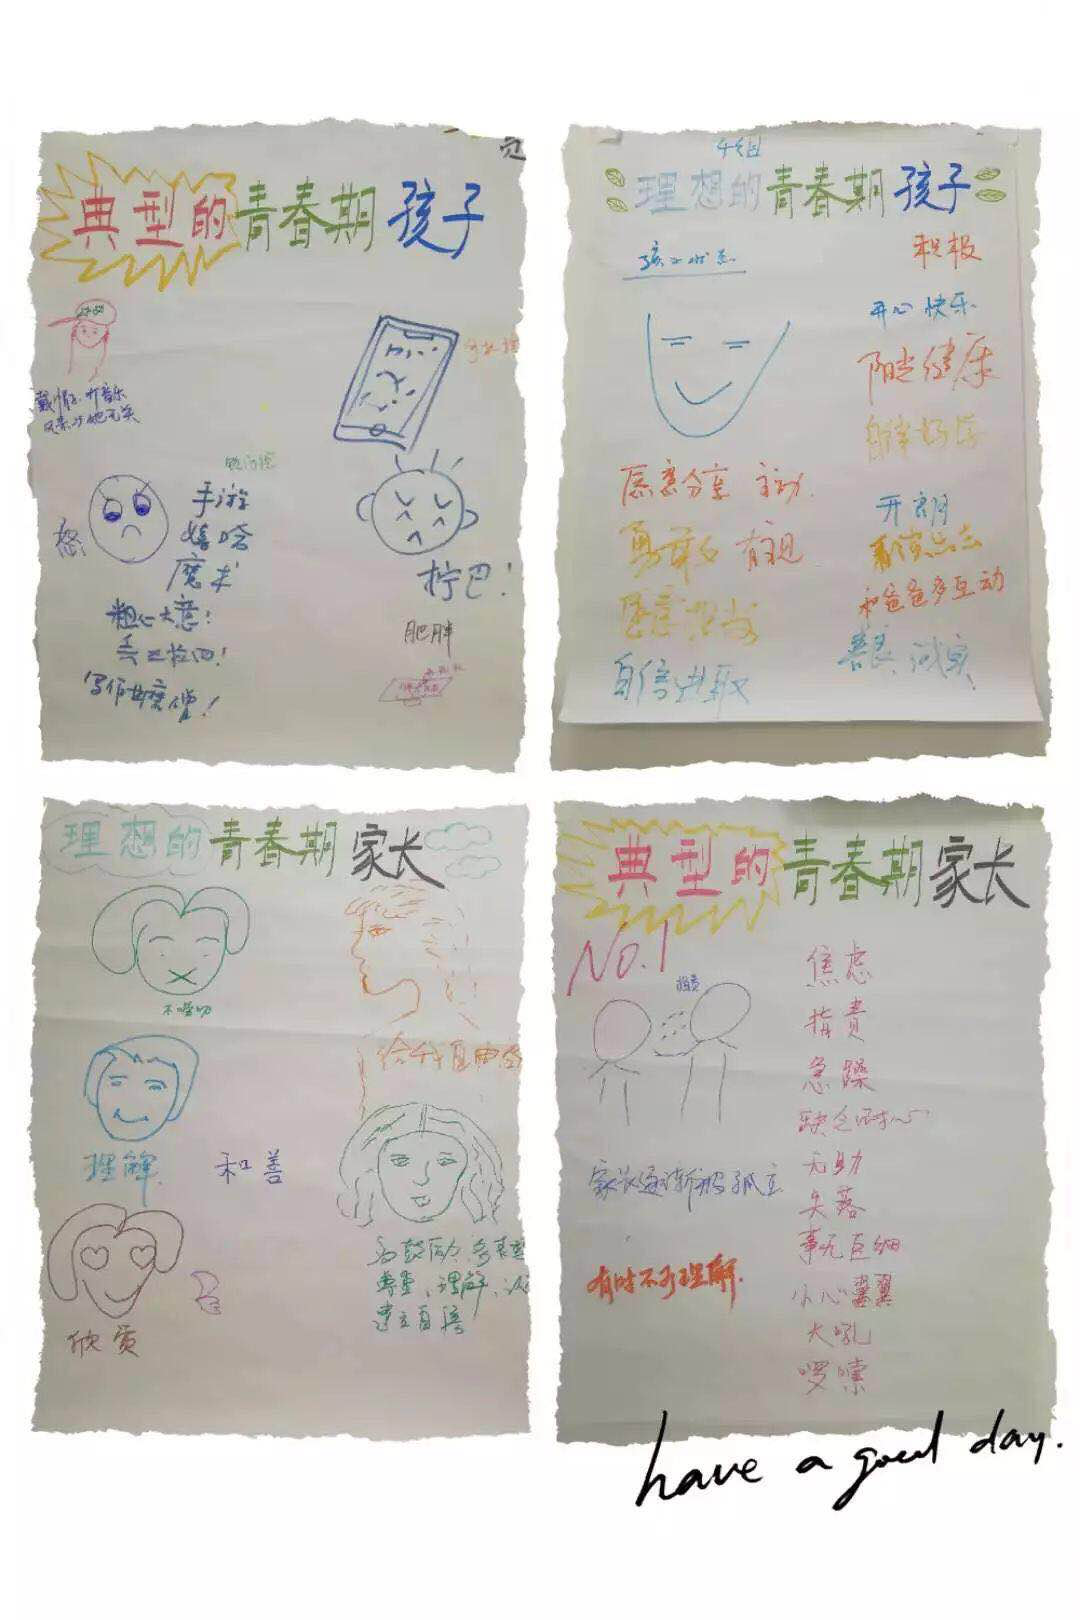 典型的青春期孩子
手游
嘻哈
魔术
怒
拧巴！
粗心大意！
丢三拉四！
肥胖
写作业磨蹭！
4组
理想的青春期孩子
孩子状态
积极
开心快乐
阳光健康
自律好学
愿意分享 主动
开朗
勇敢 有主见
和爸爸多互动
善良 诚实
自信进取
理想的青春期家长
不唠叨
给我自由
理解
和善
多鼓励
尊重、理解
建立自信
欣赏
典型的青春期家长
NO.1
指责
焦虑
指责
急躁
缺乏耐心
无助
家长逐渐被孤立
失落
事无巨细
有时不可理解
小心翼翼
大吼
啰嗦
have a good day.